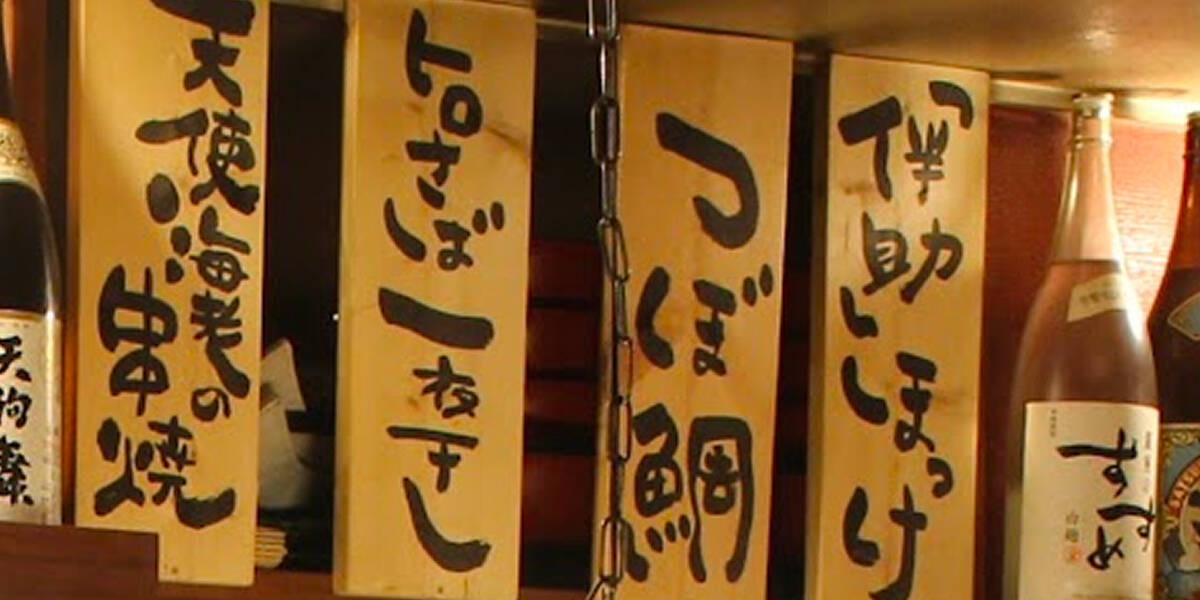 「伴助」
ほっけ
つぼ鯛
トロさば一夜干し
天使海老の
串焼
すずめ
天狗舞